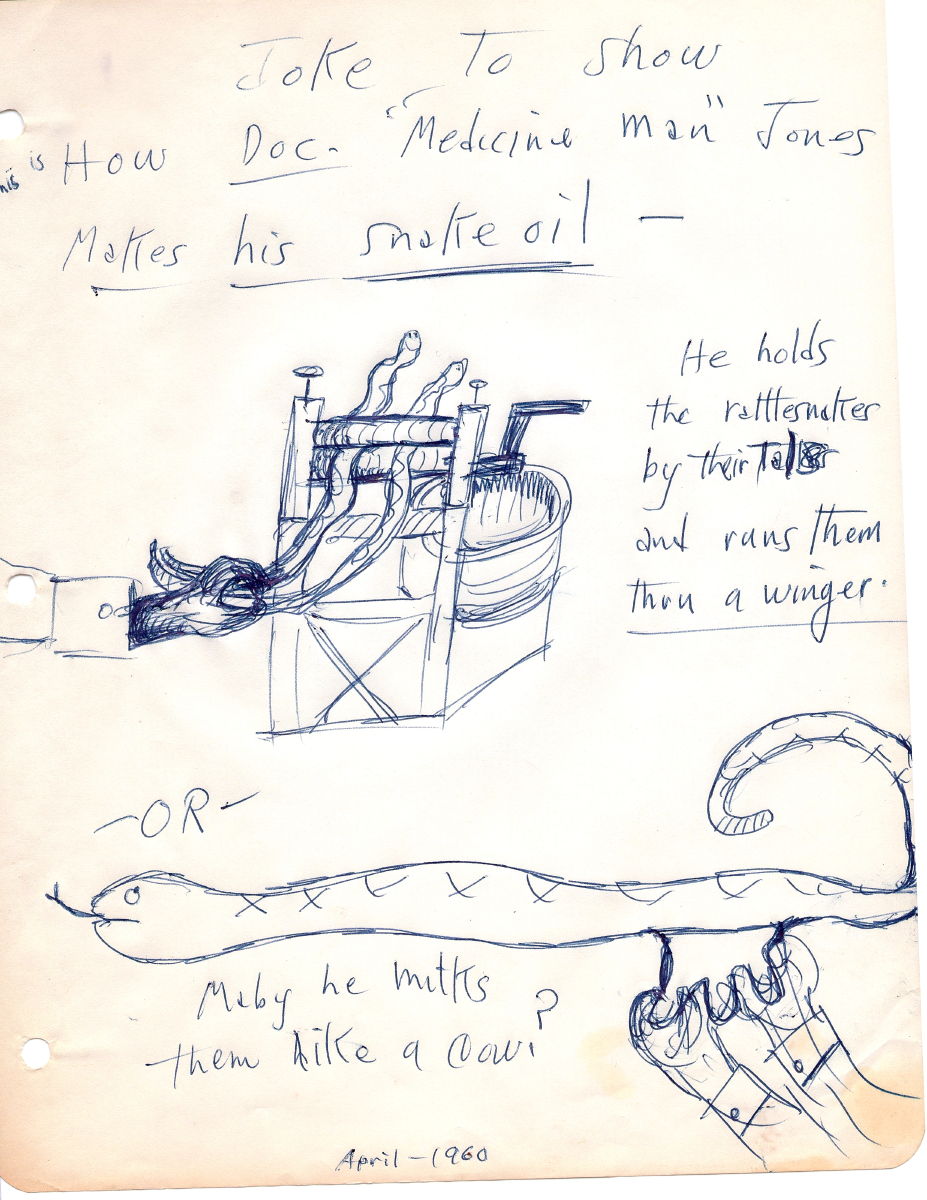 Joke To show
This is How Doc. "Medicine man" Jones
Makes his snake oil —
He holds
the rattlesnakes
by their Tales
and runs them
thru a winger.
-OR-
Maby he milks
them like a Cow?
April-1960